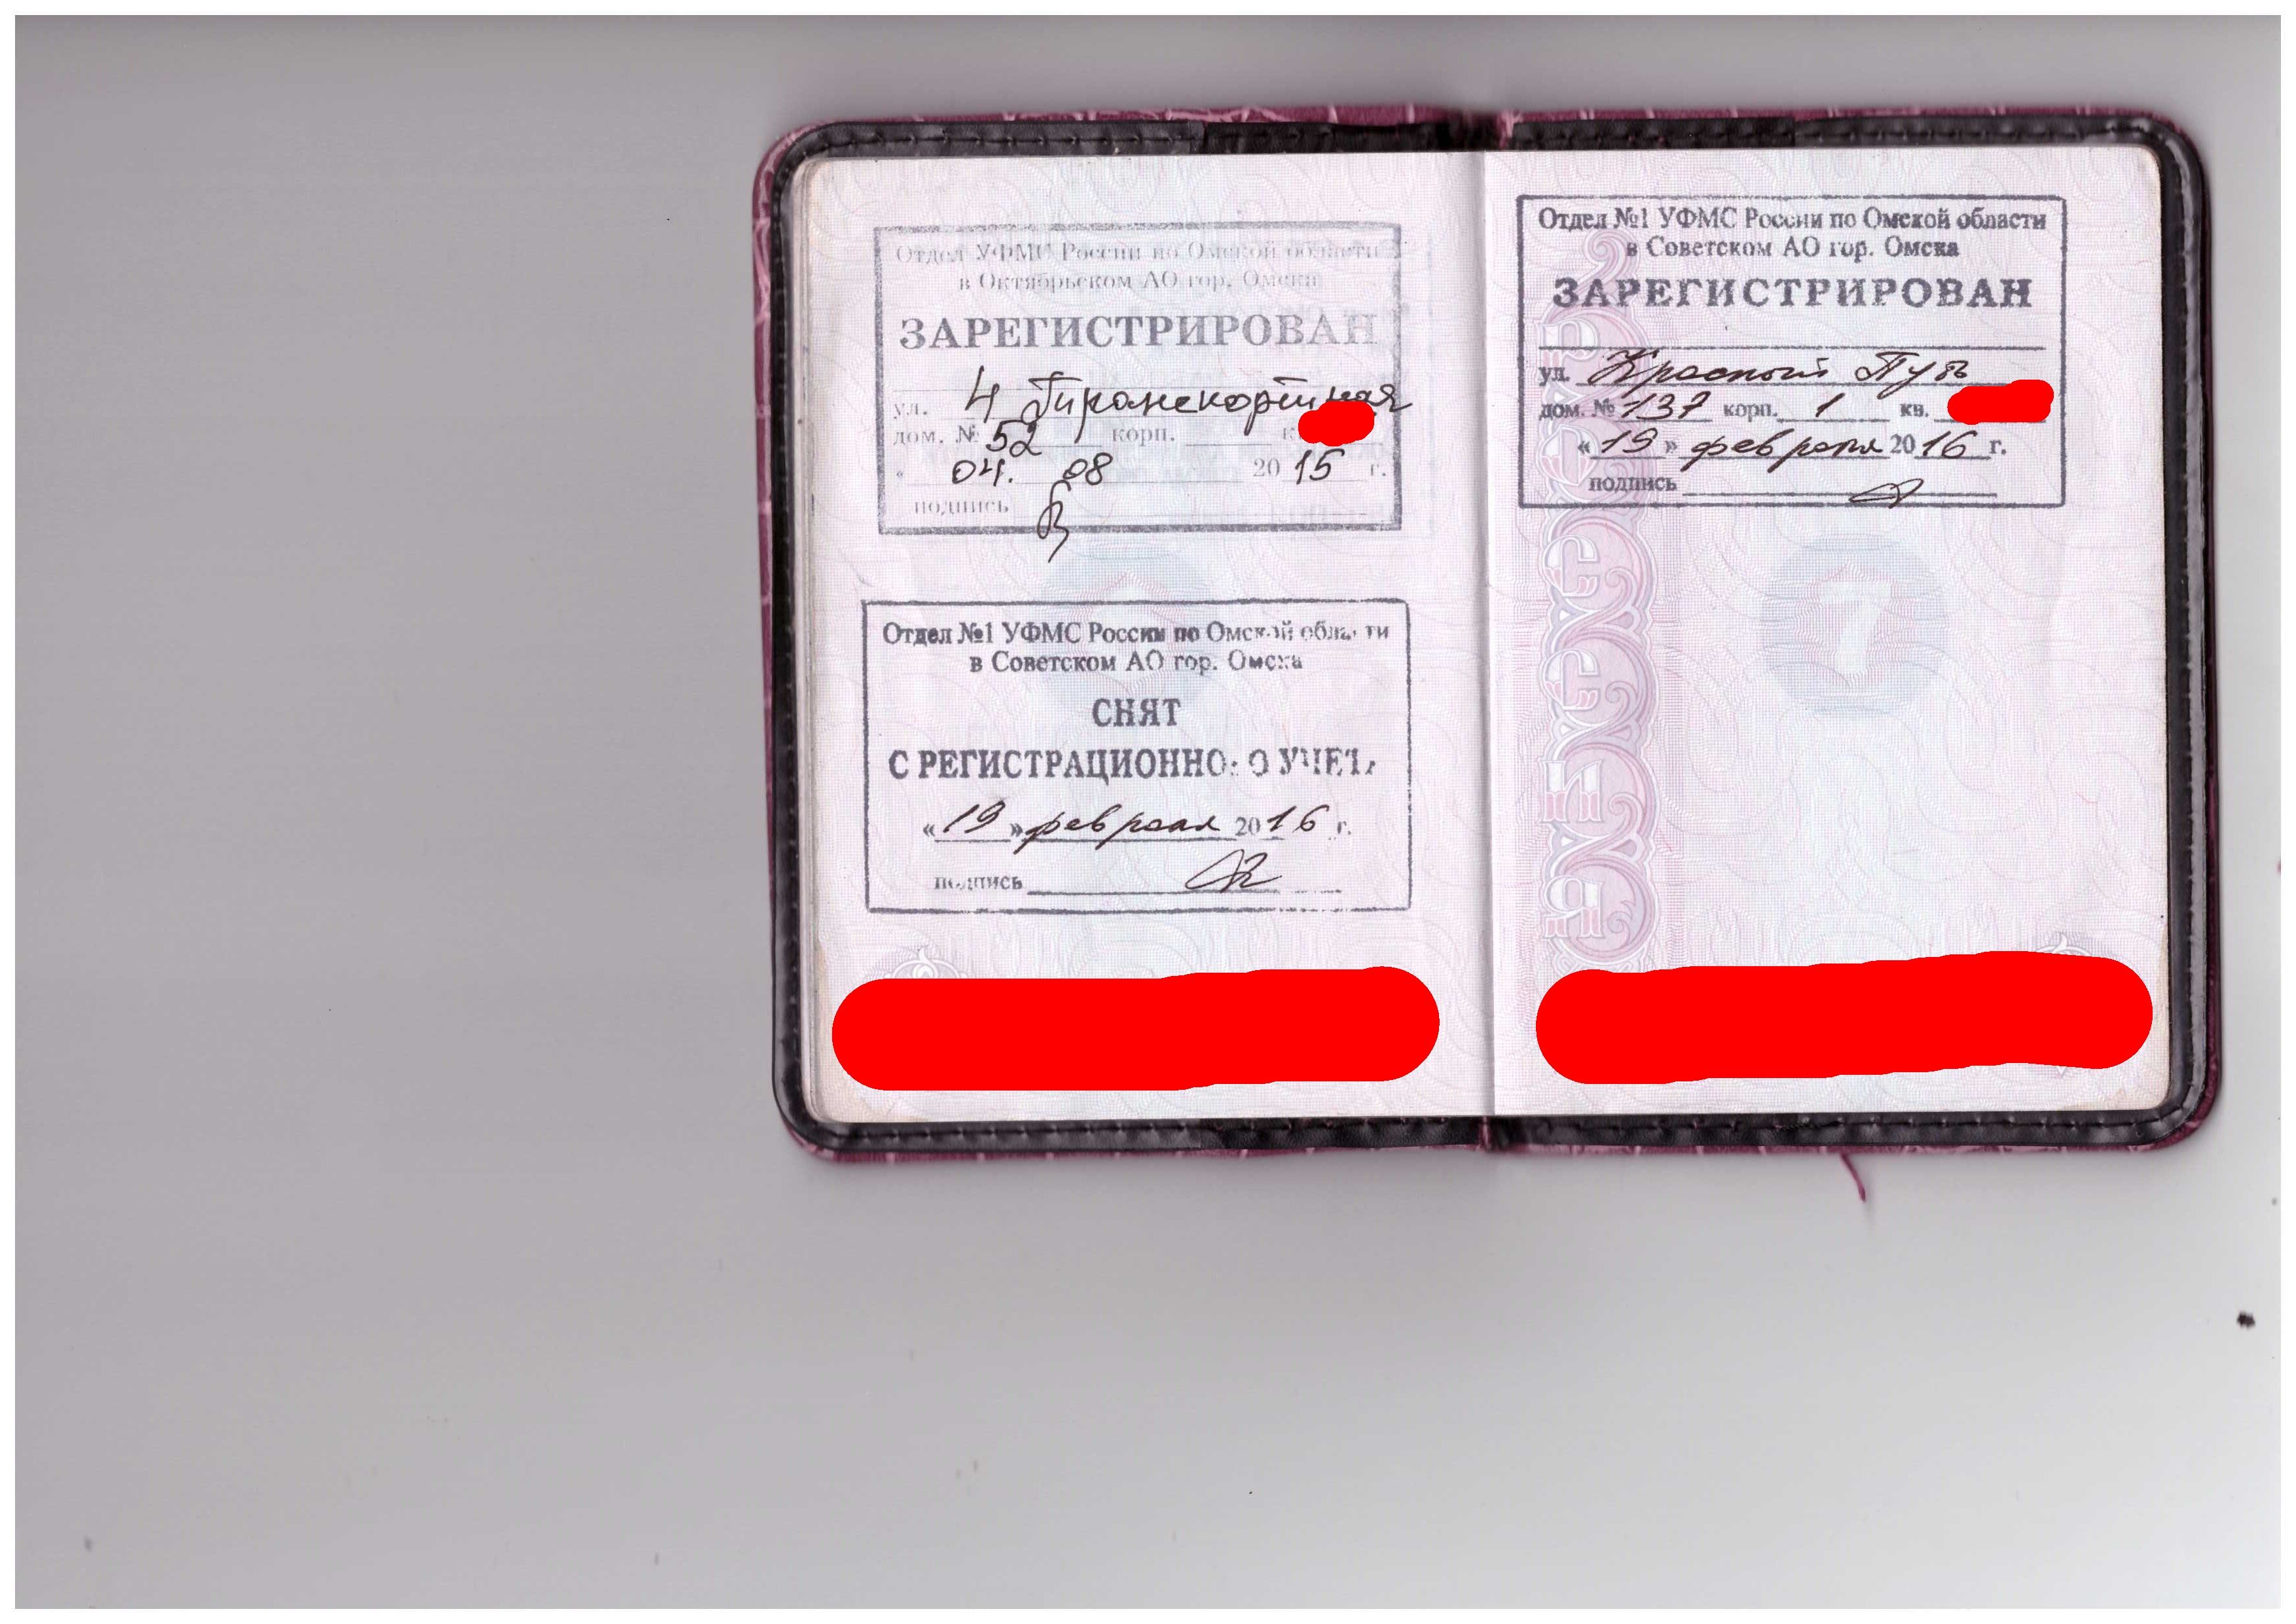 Отдел УФМС России по Омской области
в Октябрьском АО гор. Омска
ЗАРЕГИСТРИРОВАН
ул. 4 Транспортная
дом. № 52 корп.
« 04. 08 2015 г.
подпись
Отдел №1 УФМС России по Омской области
в Советском АО гор. Омска
СНЯТ
С РЕГИСТРАЦИОННОГО УЧЕТА
« 19 » февраля 2016 г.
подпись
Отдел №1 УФМС России по Омской области
в Советском АО гор. Омска
ЗАРЕГИСТРИРОВАН
ул. Красный Путь
дом. № 137 корп. 1 кв.
« 19 » февраля 2016 г.
подпись
7